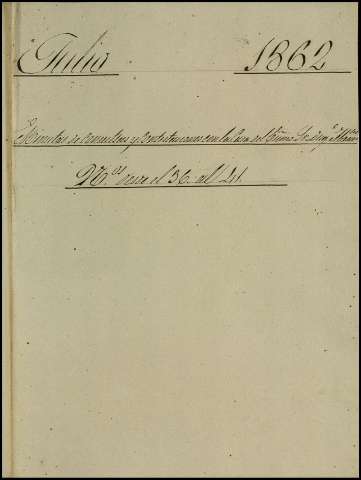 Julio 1862
Minutas de Consultas y Contestaciones con la Casa del Exmo Sr Duq.e
N.os desde el 36 al 41